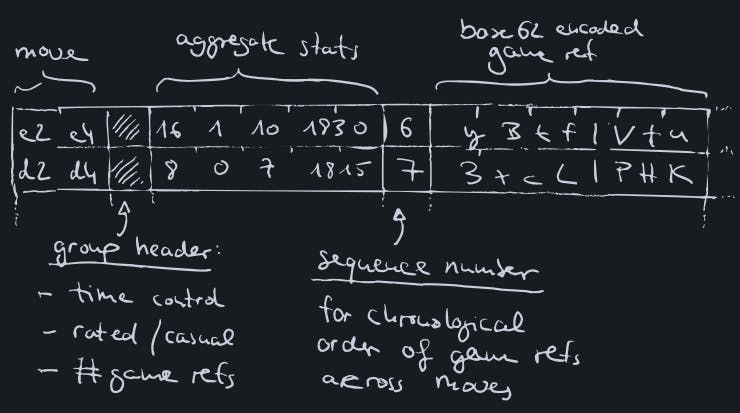 move
aggregate stats
base62 encoded
game ref
e2 e4 16 1 10 1930 6 y B t f l V t u
d2 d4 8 0 7 1815 7 3 t c L l P H K
group header:
- time control
- rated/casual
- # game refs
sequence number
for chronological
order of game refs
across moves